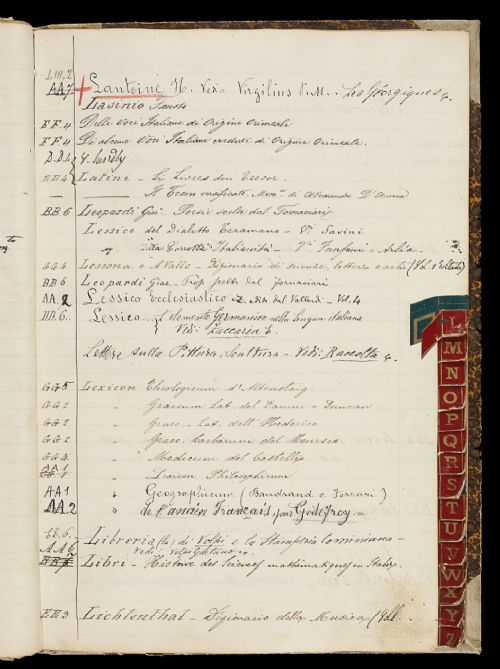 L.III.2
AA7 + Lantoine H. Vedi Virgilius P.M. - Les Géorgiques &.
Lasinio
FF.4 Delle Voci Italiane di Origine Orientale
FF.4 Di alcune Voci Italiane credute di Origine Orientale.
D.D.4
DD4 Latini - Li Livres dou Tresor
— Il Tesoro versificato, Mem.ia di Alessandro D'Ancona
BB6 Leopardi Gia. Poesie scelte dal Fornaciari
Lessico del Dialetto Teramano - Vi. Savini
" della Corrotta Italianità - Vi. Fanfani - Arlia
GG4 Lessona e A Valle - Dizionario di scienze, lettere e arti
BB6 Leopardi Giac. - Prose scelte dal Fornaciari
AA.2 Lessico Ecclesiastico - Vol. 4
DD.6.. Lessico... L'elemento Germanico nella lingua italiana
Vedi: Zaccaria E.
Lettere sulla Pittura, Scultura - Vedi: Raccolta &.
GG5 Lexicon Theologicum
GG2 " Graecum Lat. del Damm e Duncan
GG2 " Graec. - Lat. dell' Hederico
GG2 " Graec. barbarum del Meursio
GG4 " Medicum del Castelli
AA1
" Lexicon Philosophicum
AA1 " Geographicum (Baudrand e Ferrari)
AA2 " de l'ancien Français, par Godefroy
EE.6. Libreria (la) di Volpi e la Stamperia Cominiana -
AA6 Vedi: Volpi Gaetano
BB5 Libri - Histoire des Sciences mathématiques en Italie.
EE3 Lichtenthal - Dizionario della Musica
L
M
N
O
P
Q
R
S
T
U
V
W
X
Y
Z